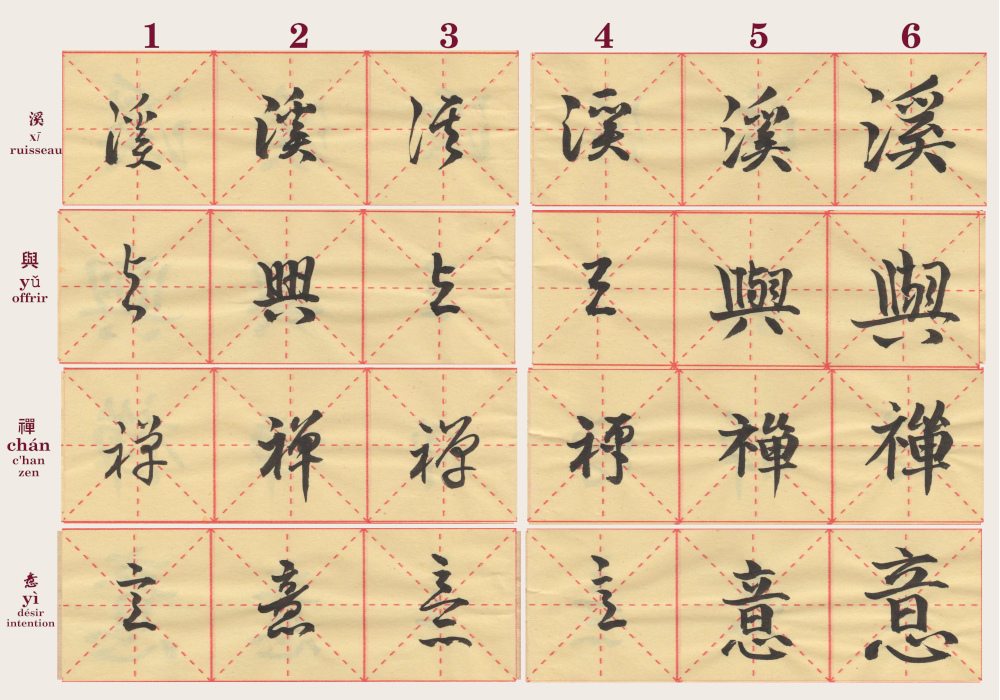 1 2 3 4 5 6
溪
xī
ruisseau
溪 溪 溪 溪 溪 溪
與
yǔ
offrir
與 與 與 與 與 與
禪
chán
c'han
zen
禪 禪 禪 禪 禪 禪
意
yì
désir
intention
意 意 意 意 意 意